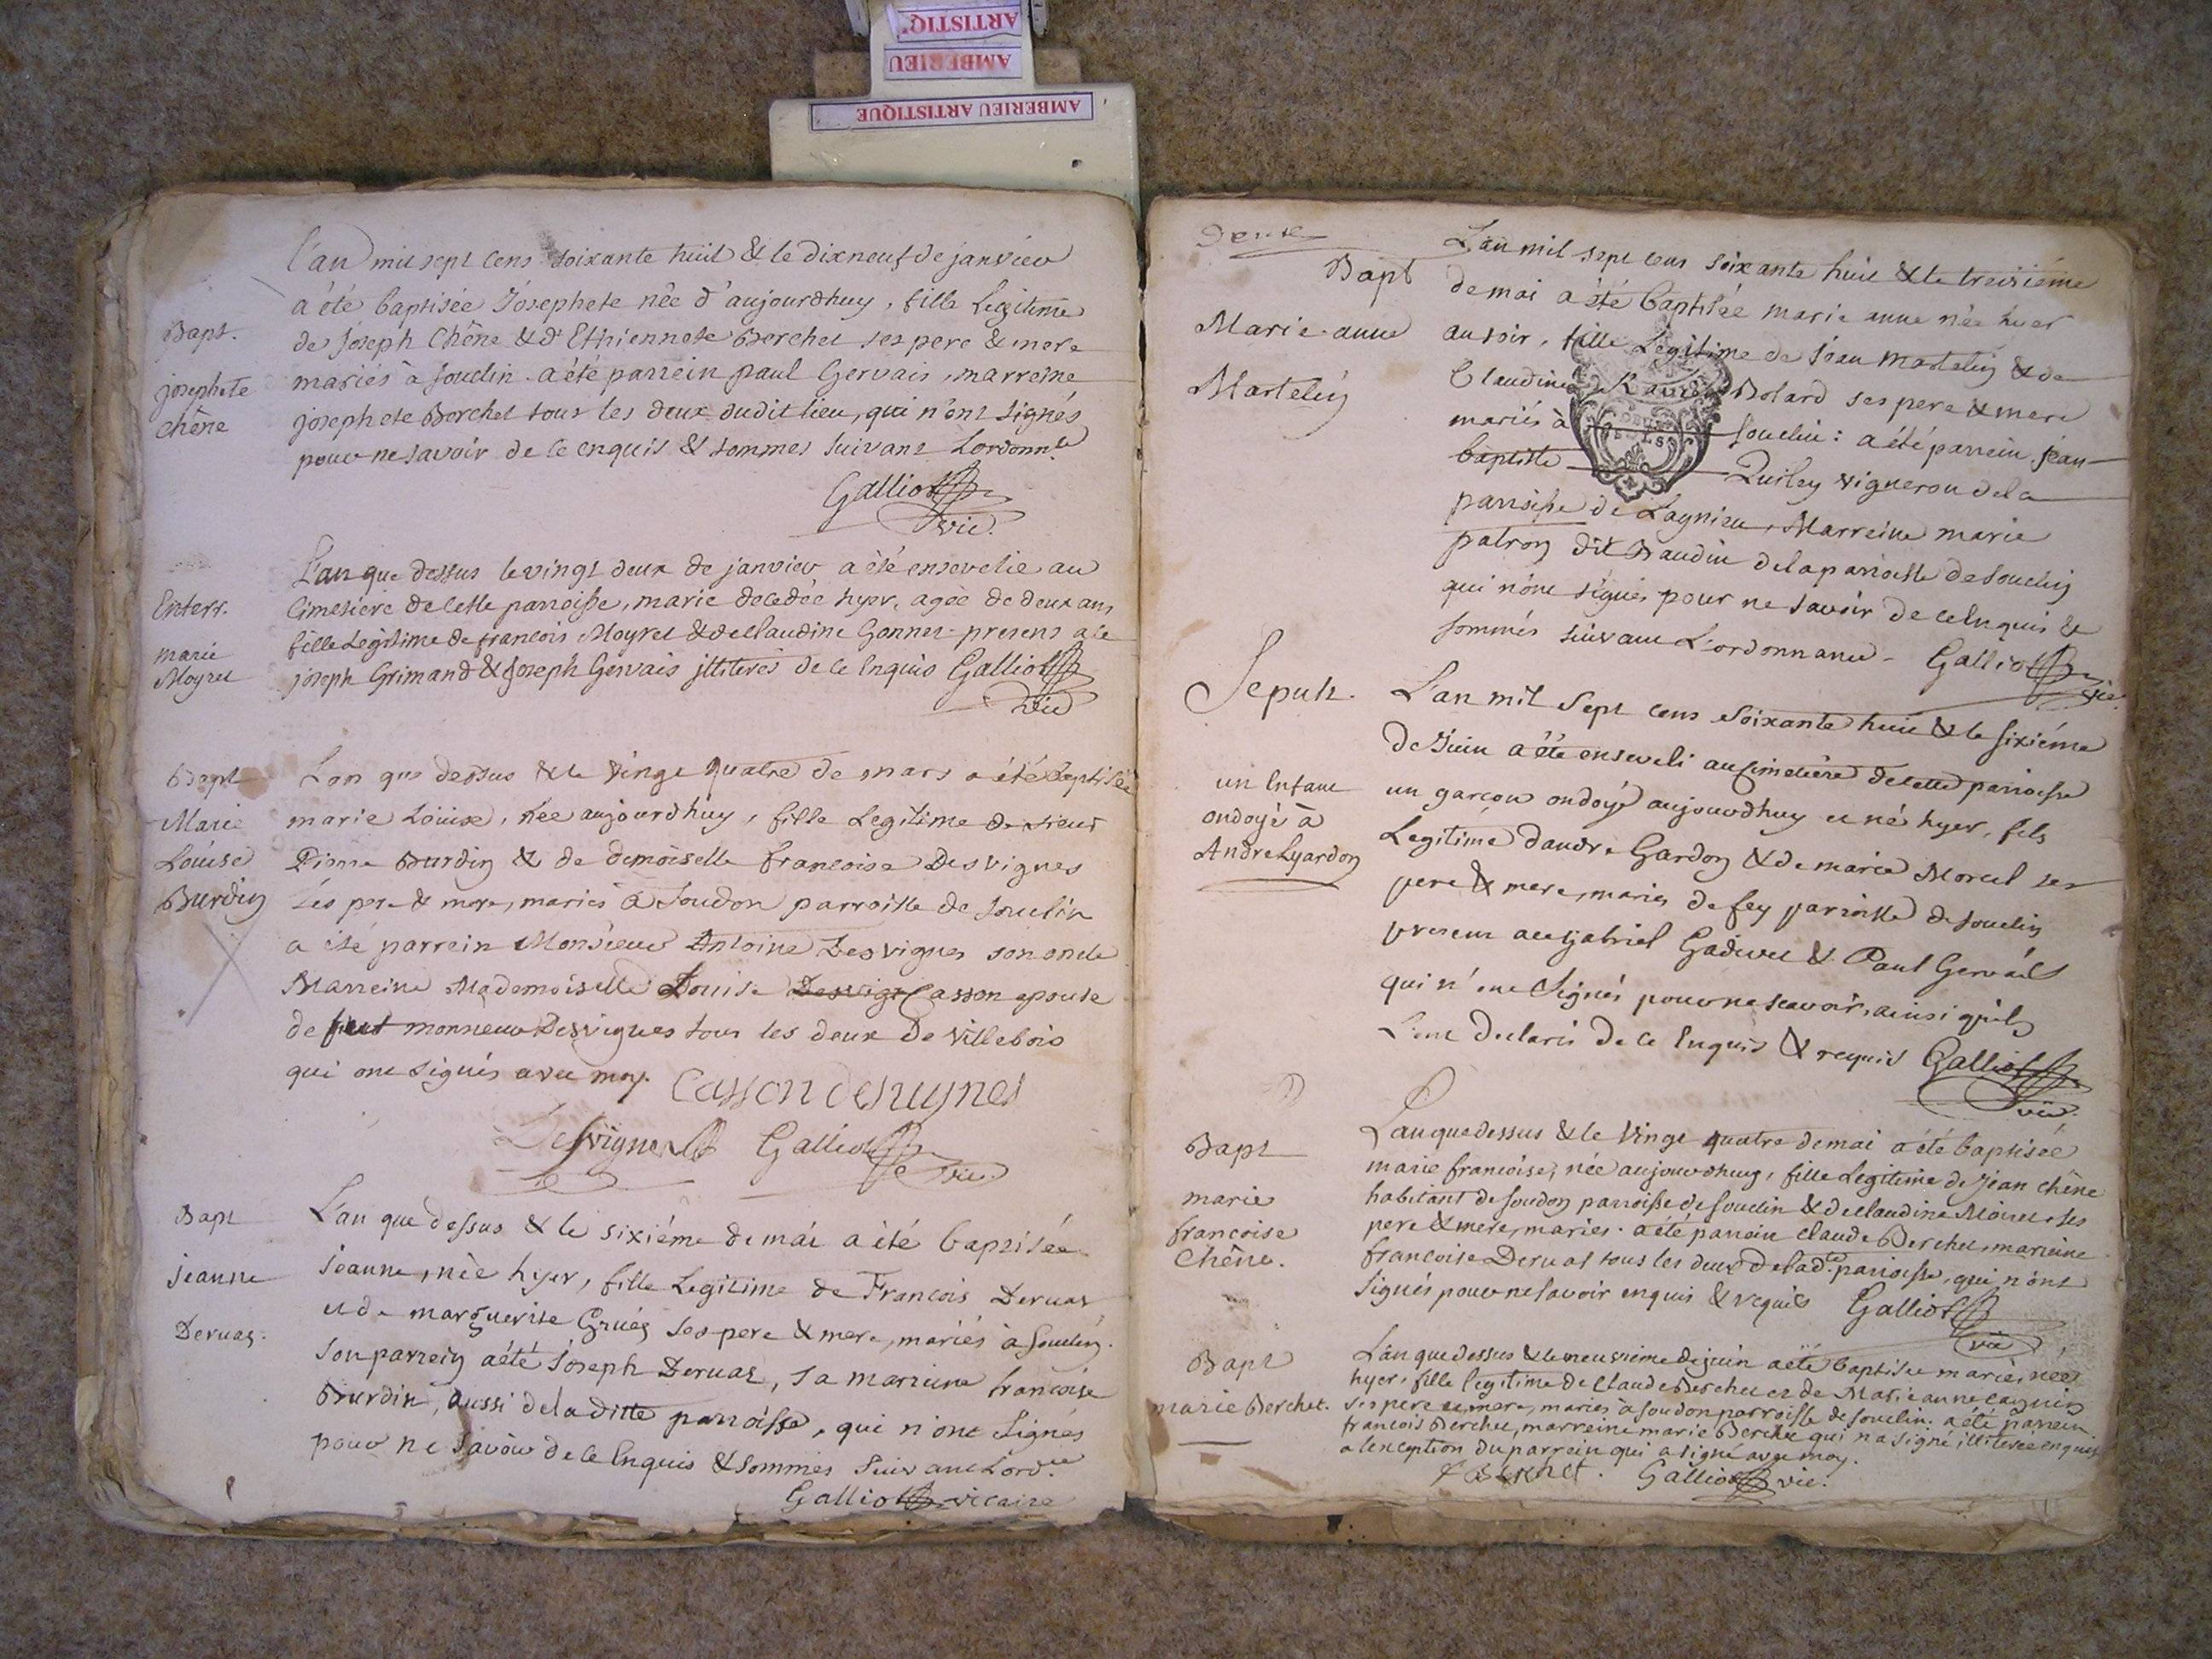 ARTISTIQ'
AMBERIEU
AMBERIEU ARTISTIQUE
L'an mil sept cens soixante huit & le dixneuf de janvier
a été baptisée Josephete née d'aujourdhuy, fille Legitime
de Joseph Chêne & d'Ethiennete Berchet ses pere & mere
mariés à Souclin. a été parrein paul Gervais, marreine
josephete Berchet tous les deux dudit lieu, qui n'ont signés
pour ne savoir de ce enquis & sommes suivant Lordonn.ce
Galliot
vic.
Bapt.
josephete
chêne
L'an que dessus le vingt deux de janvier a été ensevelie au
Cimetiere de cette parroisse, marie decedée hyer, agee de deux ans
fille Légitime de francois Moyret & de Claudine Gonnet presens a ce
joseph Grimand & Joseph Gervais illiterés de ce Enquis Galliot
vic
Enterr.
marie
Moyret
L'an que dessus & le vingt quatre de mars a été baptisée
marie Loüise, née aujourdhuy, fille Legitime de sieur
Pierre Burdin & de demoiselle francoise Desvignes
ses pere & mere, mariés à Soudon parroisse de Souclin
a été parrein Monsieur Antoine Desvignes son oncle
Marreine Mademoiselle Louise Desvig Casson epouse
de feut monsieur Desvignes tous les deux de Villebois
qui ont signés avec moy. Casson desuignes
Desvignes Galliot
vic.
Bapt
Marie
Loüise
Burdin
L'an que dessus & le sixiéme de mai a été baptisée
jeanne, née hyer, fille Legitime de Francois Deruaz
et de marguerite Gruéz ses pere & mere, mariés à Souclin.
Son parrein a été Joseph Deruaz, sa marreine francoise
Burdin, aussi de la ditte parroisse, qui n'ont signés
pour ne savoir de ce Enquis & sommés suivant Lord.ce
Galliot vicaire
Bapt
jeanne
Deruaz.
Deux
L'an mil sept cens soixante huit & le treisiéme
de mai a été baptisée marie anne née hyer
au soir, fille Legitime de Jean Martelin & de
Claudine Bolard ses pere & mere
mariés à Souclin: a été parrein jean
baptiste Quiley vigneron de la
parroisse de Lagnieu, Marreine marie
patron dit Baudin de la parroisse de Souclin
qui n'ont signés pour ne savoir de ce Enquis &
sommés suivant L'ordonnance. Galliot
vic.
Bapt
Marie-anne
Martelin
L'an mil sept cens soixante huit & le sixiéme
de Juin a été enseveli au Cimetiére de cette parroisse
un garçon ondoyé aujourdhuy et né hyer, fils
Legitime d'andre Gardon & de marie Morel ses
pere & mere, mariés de fey parroisse de Souclin
presens a ce gabriel Gadivet & Paul Gervais
qui n'ont signés pour ne scavoir, ainsi qu'ils
L'ont declaré de ce Enquis & requis Galliot
vic.
Sepult.
un Enfant
ondoyé à
André Gardon
L'an que dessus & le vingt quatre de mai a été baptisée
marie francoise, née aujourdhuy, fille Legitime de Jean Chêne
habitant de Soudon parroisse de Souclin & de Claudine Moret ses
pere & mere, mariés. a été parrein Claude Berchet, marreine
francoise Deruaz tous les deux de lad.te parroisse, qui n'ont
signés pour ne savoir enquis & requis Galliot
vic
Bapt
marie
francoise
Chêne.
L'an que dessus & le neuvième de juin a été baptisee marie, née
hyer, fille legitime de Claude Berchet et de Marie anne cagnin
ses pere et mere, mariés à soudon parroisse de souclin. a été parrein
francois Berchet, marreine marie Berchet qui n'a signé, illiterée enquise
a l'exception du parrein qui a signé avec moy.
Galliot vic.
Bapt
marie Berchet.